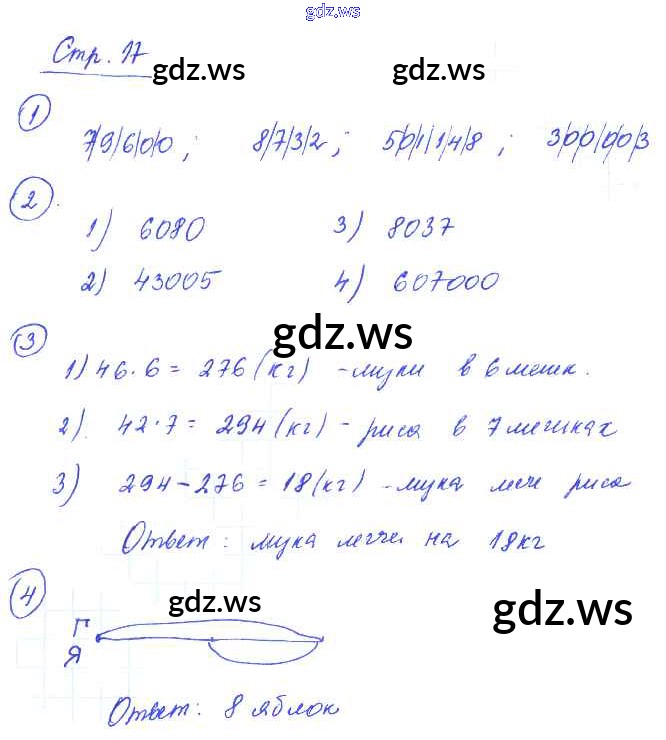 gdz.ws
Стр. 17
gdz.ws gdz.ws
1
7/9/6/0/0 ; 8/7/3/2 ; 5/0/1/1/4/8 ; 3/0/0/0/0/3
2.
1) 6080 3) 8037
2) 43005 4) 607000
gdz.ws
3
1) 46·6 = 276 (кг) - муки в 6 мешк.
2). 42·7 = 294 (кг) - риса в 7 мешках
3) 294 - 276 = 18 (кг) - мука риса
Ответ: мука легче на 18 кг
4
gdz.ws gdz.ws
Г
Я
Ответ: 8 яблок